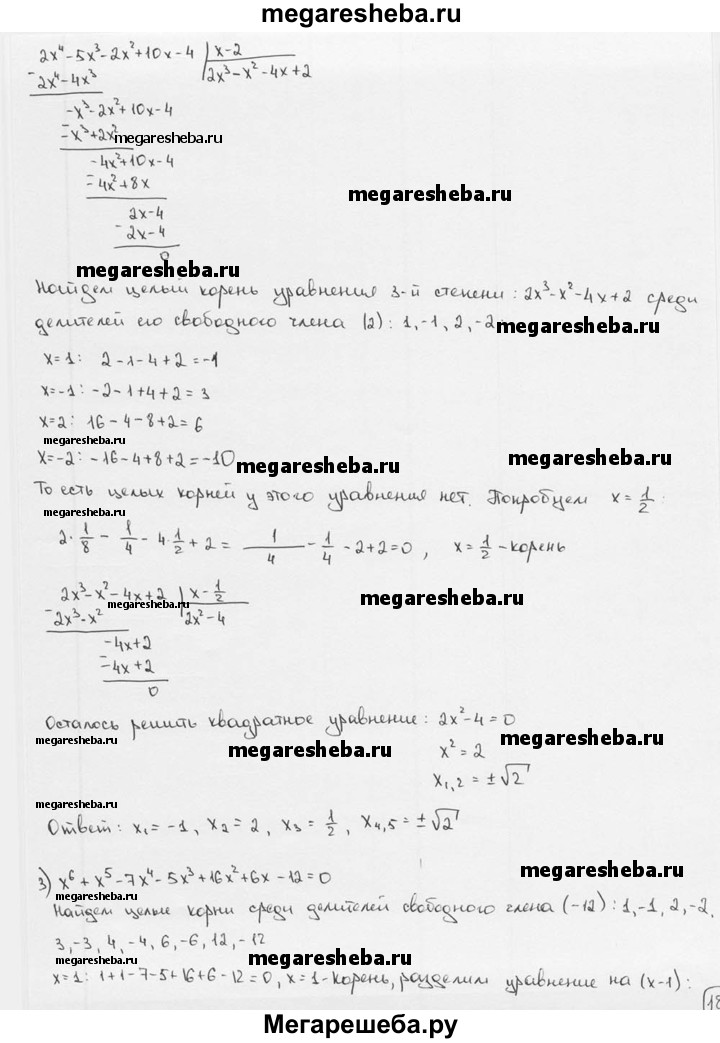 megaresheba.ru
2x⁴-5x³-2x²+10x-4 | x-2
-2x⁴-4x³ 2x³-x²-4x+2
-x³-2x²+10x-4
--x³+2x² megaresheba.ru
-4x²+10x-4
--4x²+8x
megaresheba.ru
2x-4
-2x-4
0
megaresheba.ru
Найдем целый корень уравнения 3-й степени: 2x³-x²-4x+2 среди
делителей его свободного члена (2): 1,-1, 2,-2
x=1: 2-1-4+2=-1
x=-1: -2-1+4+2=3
x=2: 16-4-8+2=6
megaresheba.ru
x=-2: -16-4+8+2=-10 megaresheba.ru megaresheba.ru
То есть целых корней у этого уравнения нет. Попробуем x=1/2:
megaresheba.ru
2·1/8 - 1/4 - 4·1/2 + 2 = 1/4 - 1/4 - 2+2=0, x=1/2-корень
2x³-x²-4x+2 | x-1/2
megaresheba.ru megaresheba.ru
-2x³-x² 2x²-4
-4x+2
--4x+2
0
Осталось решить квадратное уравнение: 2x²-4=0
megaresheba.ru megaresheba.ru megaresheba.ru
x²=2
x₁,₂=±√2
megaresheba.ru
Ответ: x₁=-1, x₂=2, x₃=1/2, x₄,₅=±√2
megaresheba.ru
3) x⁶+x⁵-7x⁴-5x³+16x²+6x-12=0
megaresheba.ru
Найдем целые корни среди делителей свободного члена (-12): 1,-1, 2,-2,
3,-3, 4,-4, 6,-6, 12,-12
megaresheba.ru megaresheba.ru
x=1: 1+1-7-5+16+6-12=0, x=1-корень, разделим уравнение на (x-1):
18
Мегарешеба.ру